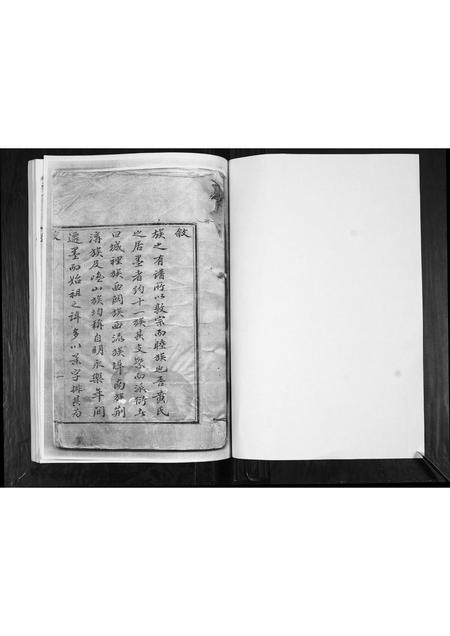 敘
族之有譜所以敦宗而睦族也吾黃氏
之居墨者約十一族其支繁而派衍者
曰城裡族西關族西流族埠南族荊
濟族及嶗山族均稱自明永樂年間
遷墨而始祖之諱多以景字排其為